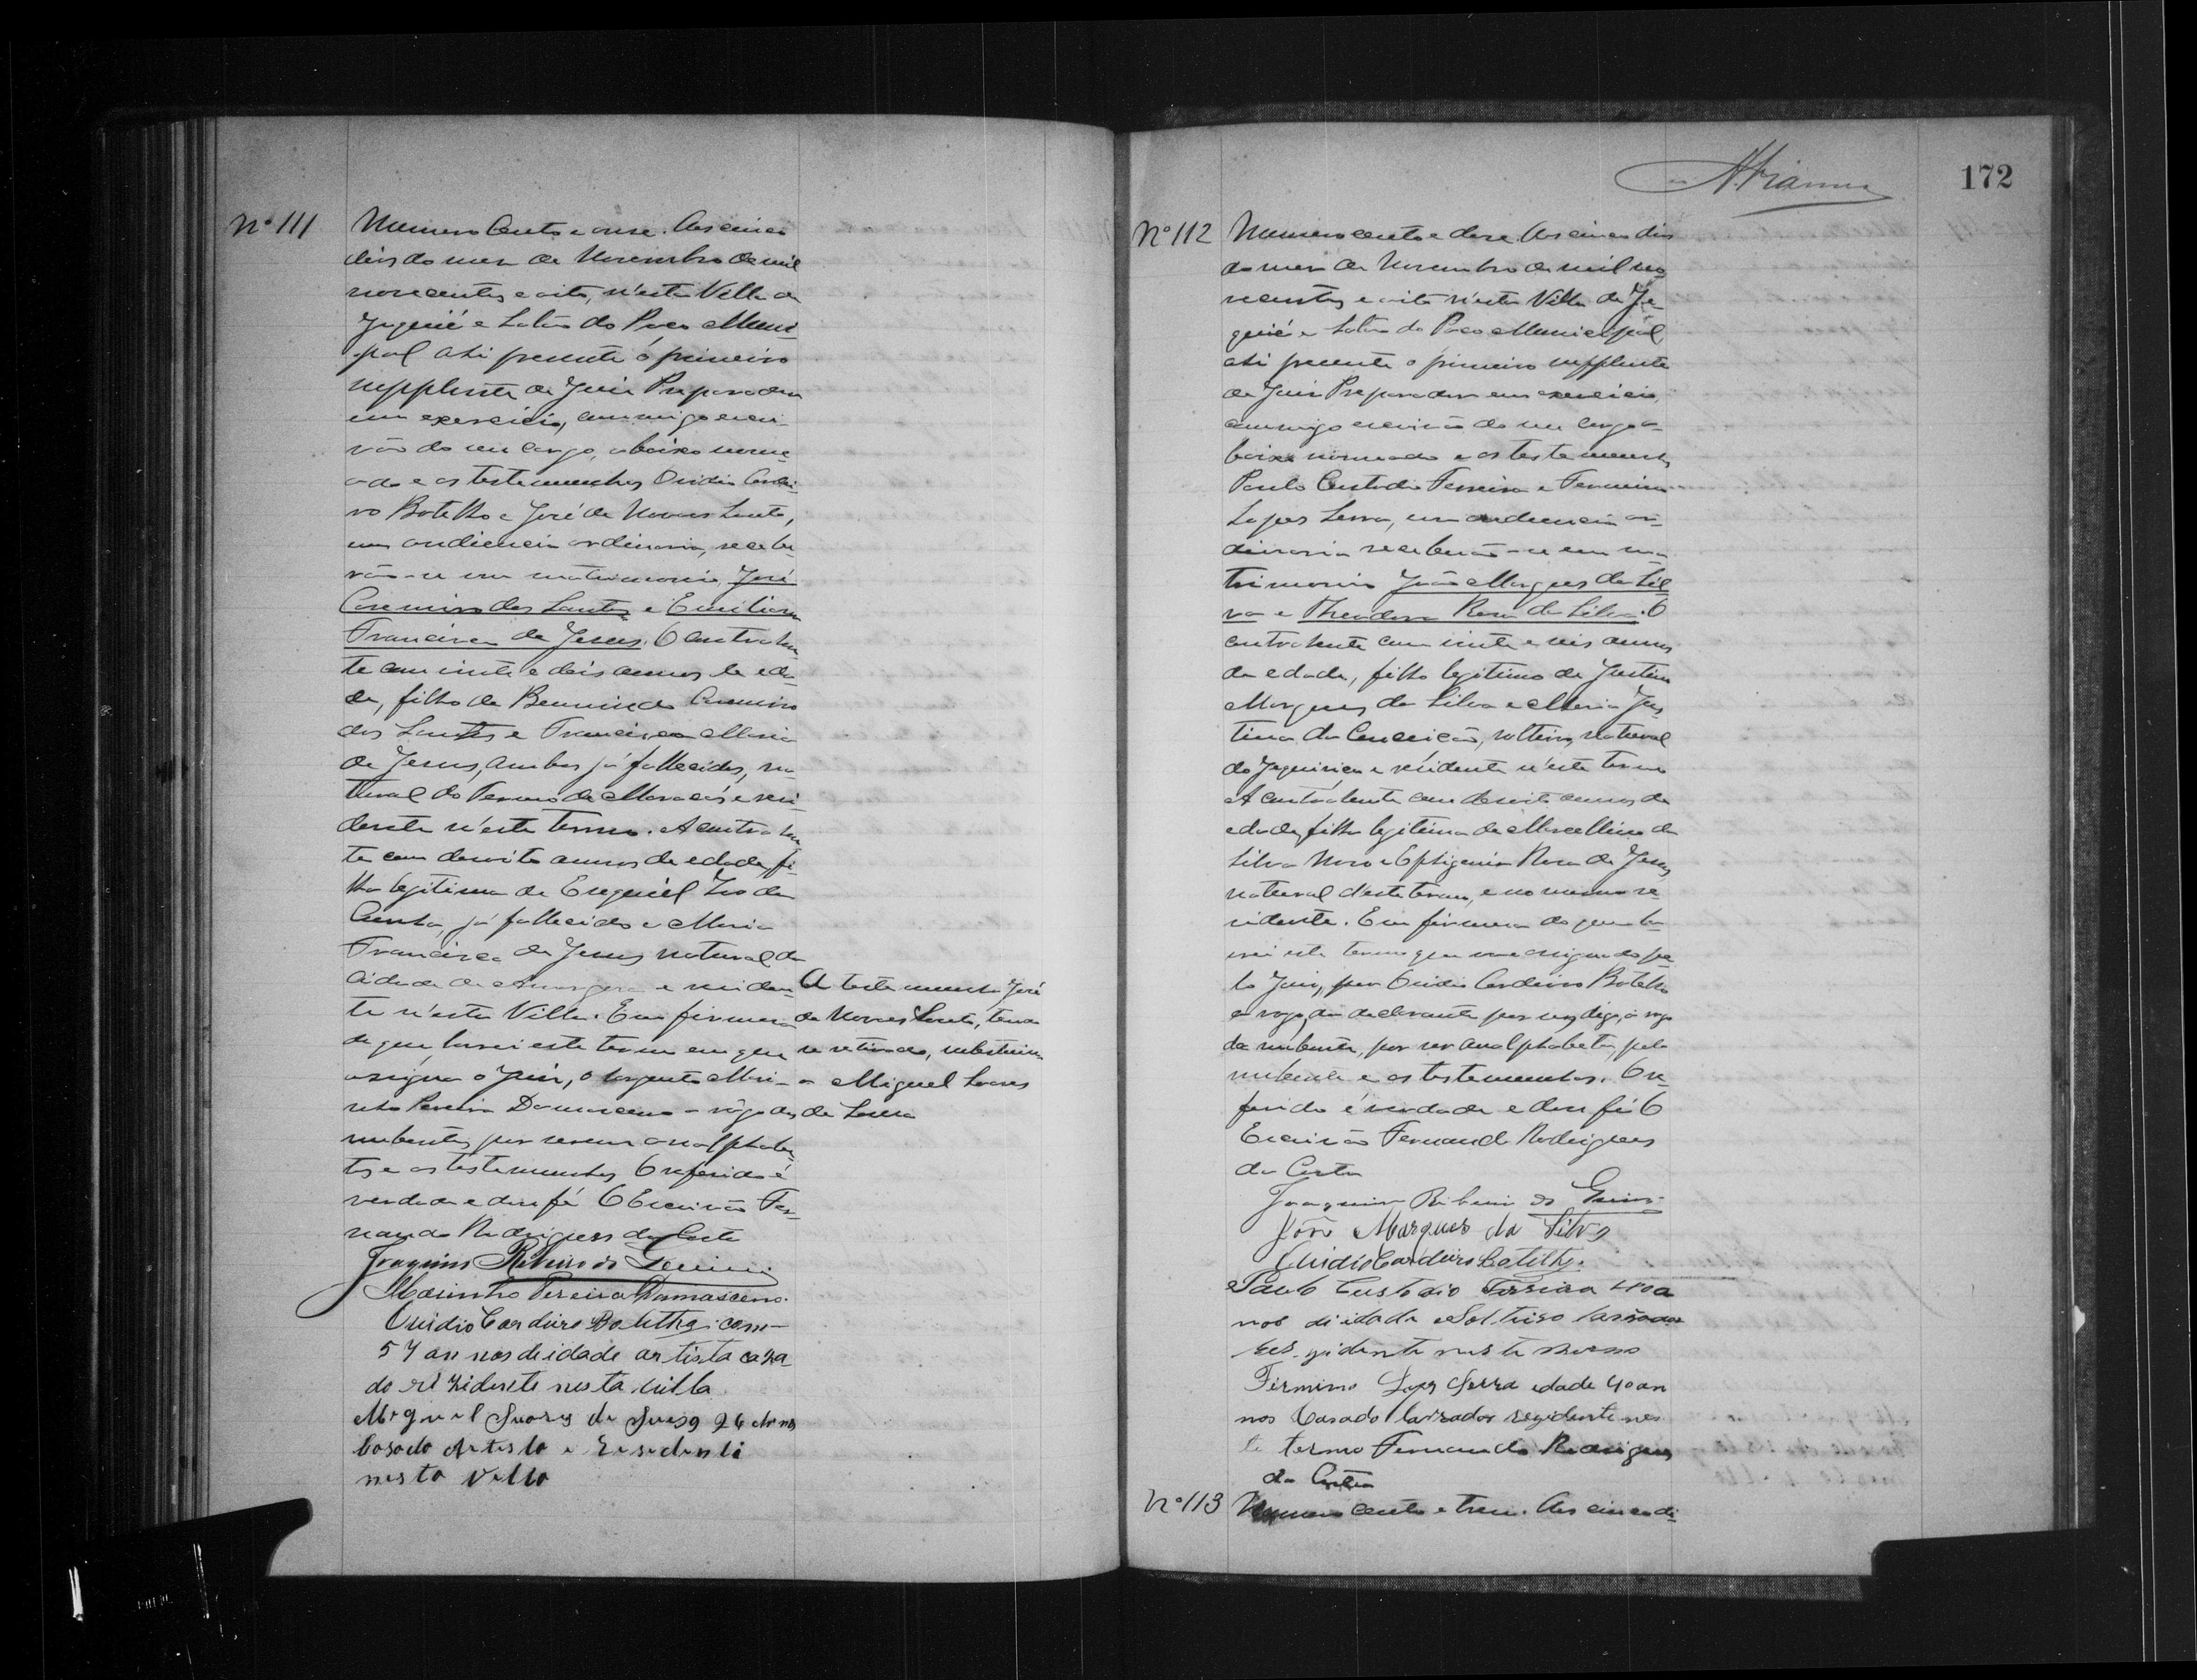 Nº 111
Numero Cento e onse. Aos cinco
dias do mez de Novembro de mil
novecentos e oito, n'esta Villa de
Jequié e Salão do Paço Munici
pal ahi presente o primeiro
supplente de Juiz Preparador
em exercicio, commigo escri-
vão do seu cargo, abaixo nome-
ado e as testemunhas Ovidio Cordei-
ro Botelho e José de Novaes Couto,
em audiencia ordinaria, recebe-
rão-se em matrimonio José
Casemiro dos Santos e Emiliana
Francisca de Jesus. O contrahen
te com vinte e dois annos de eda-
de, filho de Bemvindo Casemiro
dos Santos e Francisca Maria
de Jesus, ambos já fallecidos, na-
tural do Termo de Maracás e resi-
dente n'este termo. A contrahen
te com desoito annos de edade, fi-
lha legitima de Esequiel
Cunha, já fallecido e Maria
Francisca de Jesus natural da
Cidade de Amargosa e residen-
te n'esta Villa. Em firmesa
de que lavrei este termo em que
assigna o Juiz, o sargento Mari-
nho Pereira Damasceno a rôgo dos
nubentes, por serem analphabe-
tos e as testemunhas. O referido é
verdade e dou fé O Escrivão Fer-
nando Rodrigues da Costa
A testemunha José
de Novaes Couto, tendo
se retirado, substituiu
a Miguel Soares
de Sousa
Joaquim Ribeiro do
Marinho Pereira Damasceno.
Ovidio Cordeiro Botelho com
57 annos de idade artista caza
do rezidente nesta villa
Miguel Soares de Sousa 26 annos
Casado Artista e Residente
nesta Villa
172
Nº 112
Numero cento e dose. Aos cinco dias
do mez de Novembro de mil no-
vecentos e oito n'esta Villa de Je-
quié e Salão do Paço Municipal,
ahi presente o primeiro supplente
de Juiz Preparador em exercicio,
commigo escrivão do seu cargo a-
baixo nomeado e as testemunhas
Paulo Custodio Ferreira e Fermino
Lopes Serra, em audiencia or-
dinaria receberão-se em ma-
trimonio João Marques da Sil
va e Theodora Rosa da Silva. O
contrahente com vinte e seis annos
de edade, filho legitimo de Justino
Marques da Silva e Maria Jus
tina da Conceição, solteiro, natural
do Jequiriçá e residente n'este termo
A contrahente com desoito annos de
edade, filha legitima de Marcellino da
Silva e Ephigenia Rosa de Jesus
natural d'este termo, e no mesmo re-
sidente. Em firmesa do que la-
vrei este termo que vae assignado pe-
lo Juiz, por Ovidio Cordeiro Botelho
a rogo, da declarante por ser, digo, a rogo
da nubente, por ser analphabeta, pelo
nubente e as testemunhas. O re-
ferido é verdade e dou fé O
Escrivão Fernando Rodrigues
da Costa
Joaquim Ribeiro do
João Marques da Silva
Ovidio Cordeiro Botelho.
Paulo Custodio Ferreira 40 a
nos di idade Solteiro lavrador
rezidente neste termo
Firmino Lopes Serra edade 40 an
nos Casado lavrador rezidente nes
te termo Fernando Rodrigues
da Costa
Nº 113
Numero cento e trese. Aos cinco di-